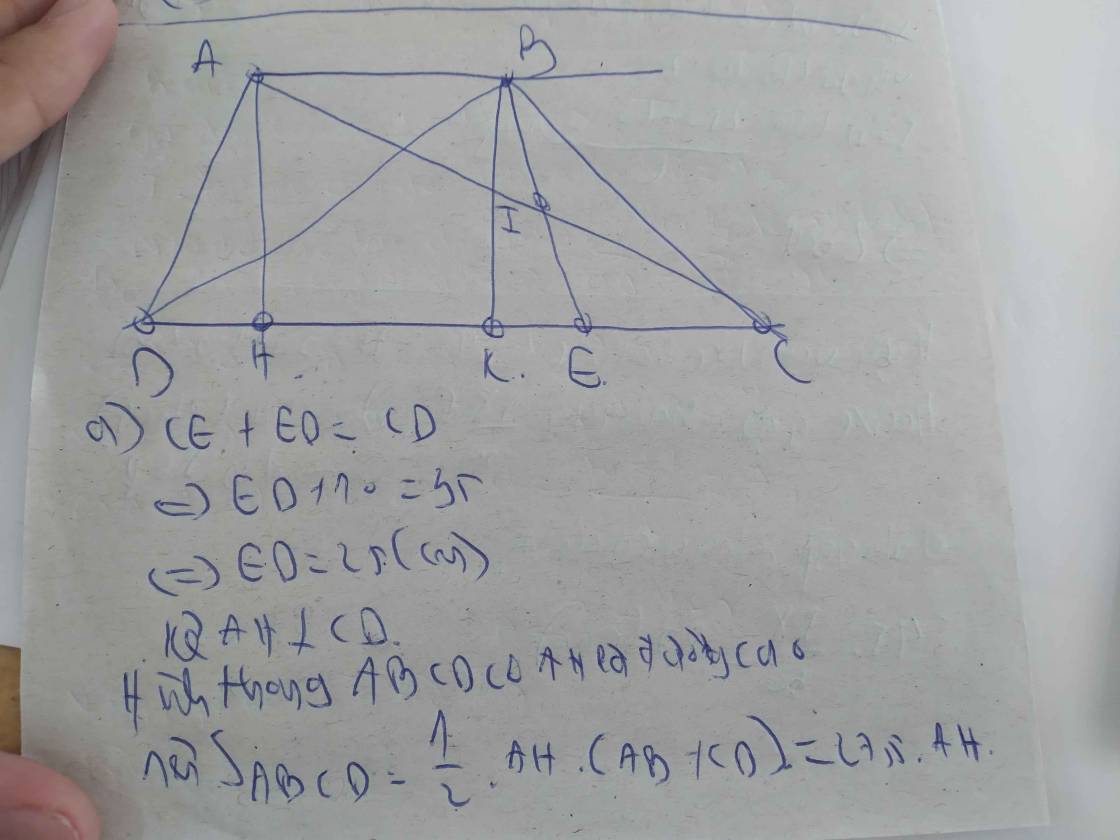 A B
I
D H K. E. C
a) CE + ED = CD
=> ED + 10 = 35
<=> ED = 25 (cm)
Kẻ AH ⊥ CD.
Hình thang ABCD có AH là đường cao
nên S ABCD = 1/2 . AH . (AB + CD) = 27,5 . AH.